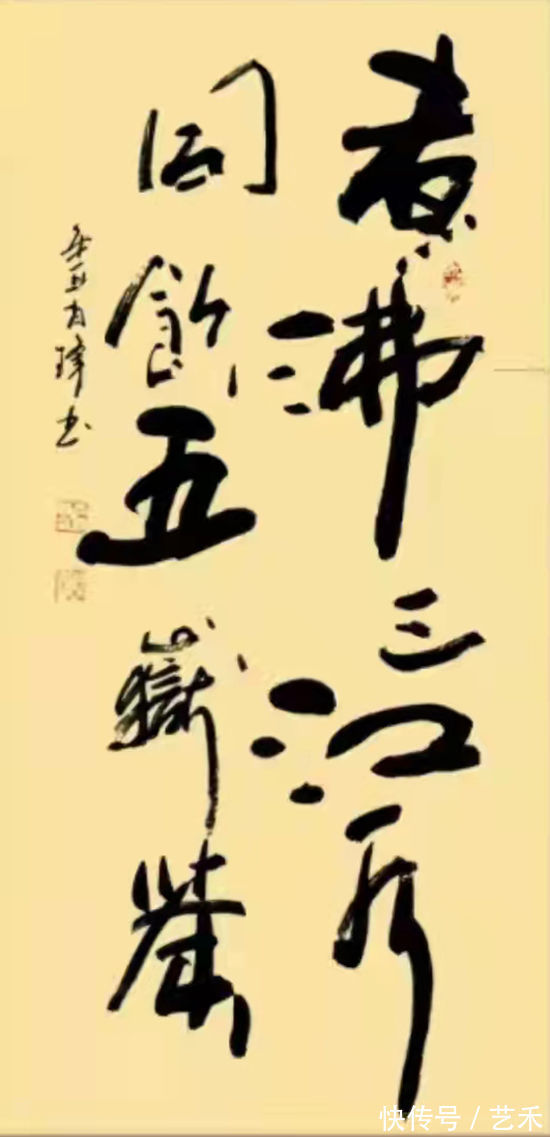 煮沸三江水
同飲五嶽茶
辛丑 书
快传号 / 艺禾